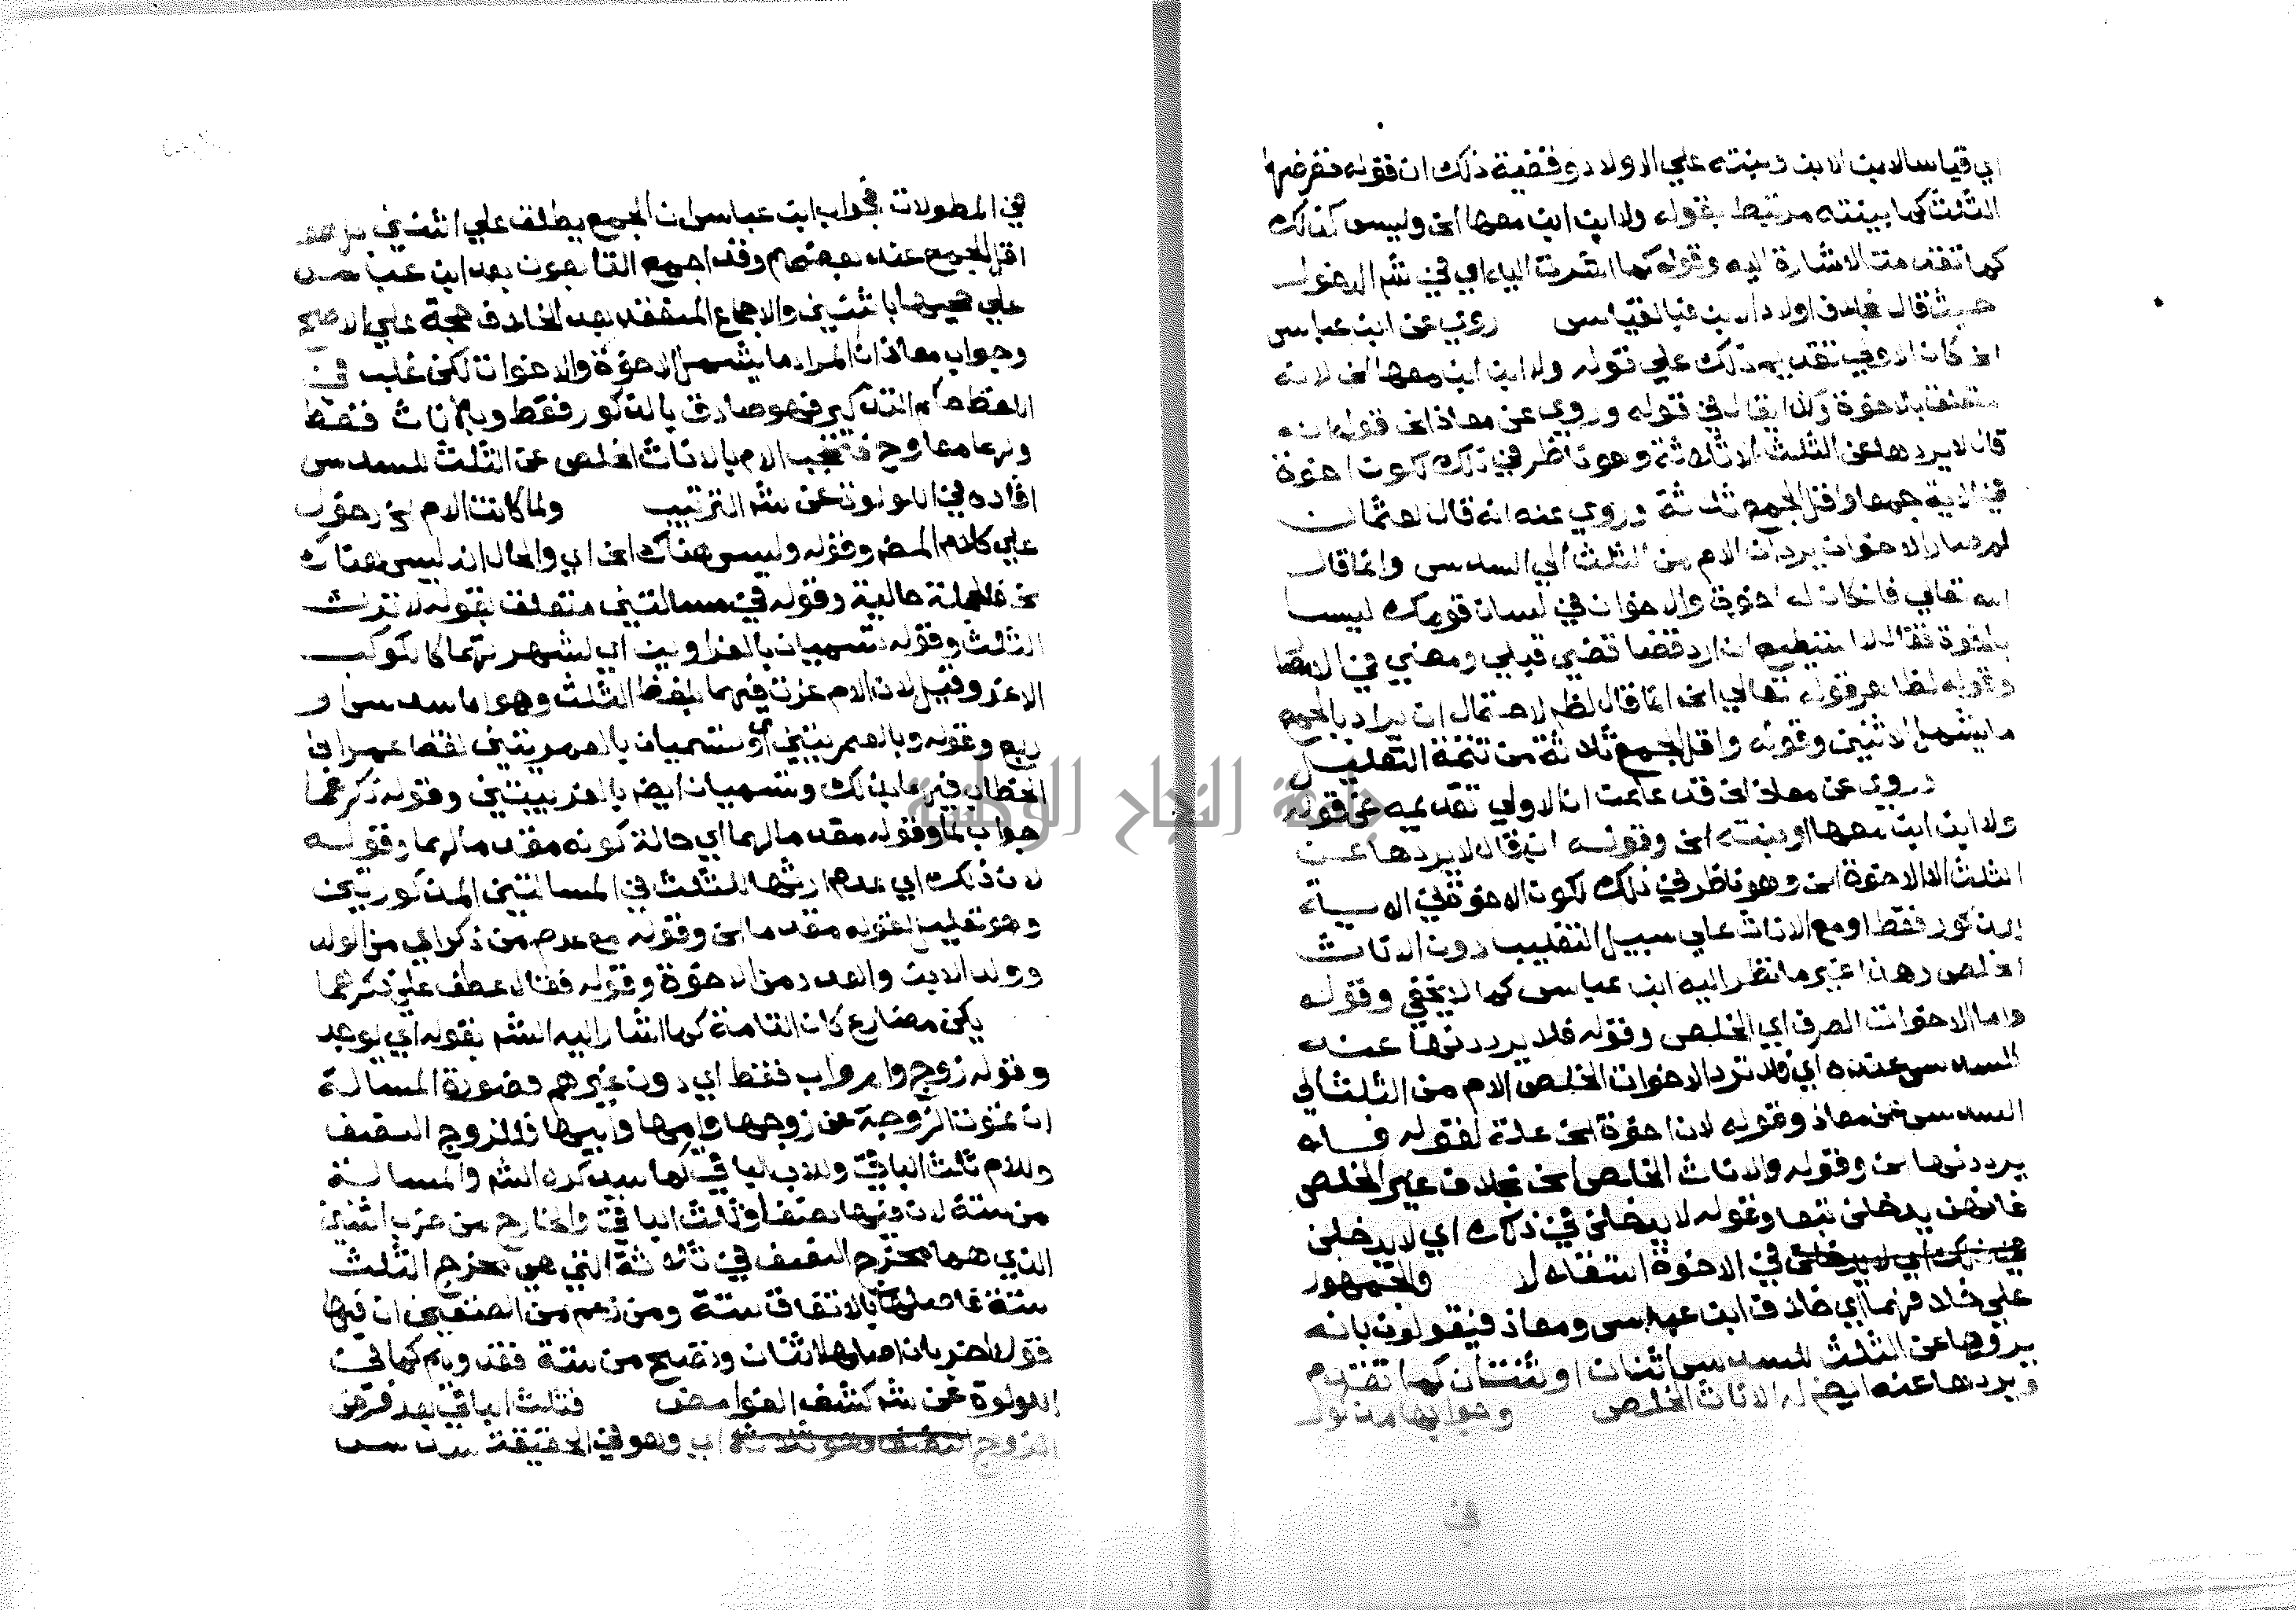 اي قياس الابن لابن وبنته علي الاولاد وقضية ذلك ان قوله ففرضها
الثلث كما بينته مرتبط بقوله ولا ابن ابن معها الخ وليس كذلك
كما تقدمت الاشارة اليه وقوله كما اشرت اليه اي في شم الاخوات
حيث قال بخلاف اولاد الابن فبالقياس روي عن ابن عباس
الخ كان الاولي تقديم ذلك علي قوله ولا ابن ابن معها الخ لانه
متعلق بالاخوة وكذا يقال في قوله وروي عن معاذ الخ قوله انه
قال لا يردها عن الثلث الا ثلاثة وهو ناظر في ذلك لكون اخوة
في الاية جمعا واقل الجمع ثلاثة وروي عنه انه قال لعثمان
لم صار الاخوان يردان الام من الثلث الي السدس وانما قال
الله تعالي فان كان له اخوة والاخوان في لسان قومك ليسا
باخوة فقال لا استطيع ان ارد قضا قضي قبلي ومضي في الامصار
وقوله لظاهر قوله تعالي الخ انما قال لظاهر لاحتمال ان يراد بالجمع
ما يشمل الاثنين وقوله واقل الجمع ثلاثة من تتمة التعليل
وروي عن معاذ الخ قد علمت ان الاولي تقديمه عن قوله
ولا ابن ابن معها او بنته الخ وقوله انه قال لا يردها عن
الثلث الا الاخوة الخ وهو ناظر في ذلك لكون الاخوة في الاية
الذكور فقط او مع الاناث علي سبيل التغليب دون الاناث
الخلص وهذا غير ما نظر اليه ابن عباس كما لا يخفي وقوله
واما الاخوات الصرف اي الخلص وقوله فلا يرددنها عنه
للسدس عنده اي فلا ترد الاخوات الخلص الام من الثلث الي
السدس عن معاذ وقوله لان اخوة الخ علة لقوله فلا
يرددنها الخ وقوله والاناث الخلص الخ بخلاف غير الخلص
فانهن يدخلن تبعا وقوله لا يدخلن في ذلك اي لا يدخلن
في ذلك اي لا يدخلن في الاخوة استقلالا والجمهور
علي خلافهما اي خلاف ابن عباس ومعاذ فيقولون بانه
يردها عن الثلث للسدس اثنان او ثنتان كما تقدم
ويردها عنه ايضا الاناث الخلص وجوابها مذكور
في المطولات فجواب ابن عباس ان الجمع يطلق علي اثنين بل هو
اقل الجمع عند بعضهم وقد اجمع التابعون بعد ابن عباس
علي حجبها باثنين والاجماع المنعقد بعد الخلاف حجة علي الاصح
وجواب معاذ ان المراد ما يشمل الاخوة والاخوات لكن غلب في
اللفظ حكم التذكير فهو صادق بالذكور فقط وبالاناث فقط
ولهما معا وح فتحجب الام بالاناث الخلص عن الثلث للسدس
افاده في اللولوة عن شم الترتيب ولما كانت الام الخ دخول
علي كلام المص وقوله وليس هناك الخ اي والحال انه ليس هناك
الخ فالجملة حالية وقوله في مسالتين متعلق بقوله لا ترث
الثلث وقوله تسميان بالغراوين اي لشهرتهما كالكوكب
الاغر وقيل لان الام غرت فيهما بلفظ الثلث وهو اما سدس او
ربع وقوله وبالعمريتين اي وتسميان بالعمريتين لقضا عمر ابن
الخطاب فيهما بذلك وتسميان ايضا بالغريبتين وقوله ذكرهما
جواب لما وقوله مقدما لهما اي حالة كونه مقدما لهما وقوله
لان ذلك اي عدم ارثها للثلث في المسالتين المذكورتين
وهو تعليل لقوله مقدما الخ وقوله مع عدم من ذكر اي من الولد
وولد الابن والعدد من الاخوة وقوله فقال عطف علي ذكرهما
يكن مضارع كان التامة كما اشار اليه الشم بقوله اي يوجد
وقوله زوج وام واب فقط اي دون غيرهم فصورة المسالة
ان تموت الزوجة عن زوجها وامها وابيها فللزوج النصف
وللام ثلث الباقي وللاب الباقي كما سيذكره الشم والمسالة
من ستة لان فيها نصفا وثلث الباقي والخارج من ضرب اثنين
الذي هما مخرج النصف في ثلاثة التي هي مخرج الثلث
ستة فاصلها بالاتفاق ستة ومن زعم من المصنفين ان فيها
قولا اخر بان اصلها اثنان وتصح من ستة فقد وهم كما في
اللولوة عن شم كشف الغوامض فثلث الباقي بعد فرض
الزوج النصف وهو ثلاثة اب وهو في الحقيقة سدس